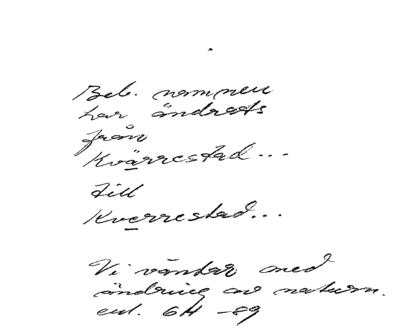 Beb. namnen
har ändrats
från
Kvärrestad...
till
Kverrestad...
Vi väntar med
ändring av naturn.
enl. GH -89